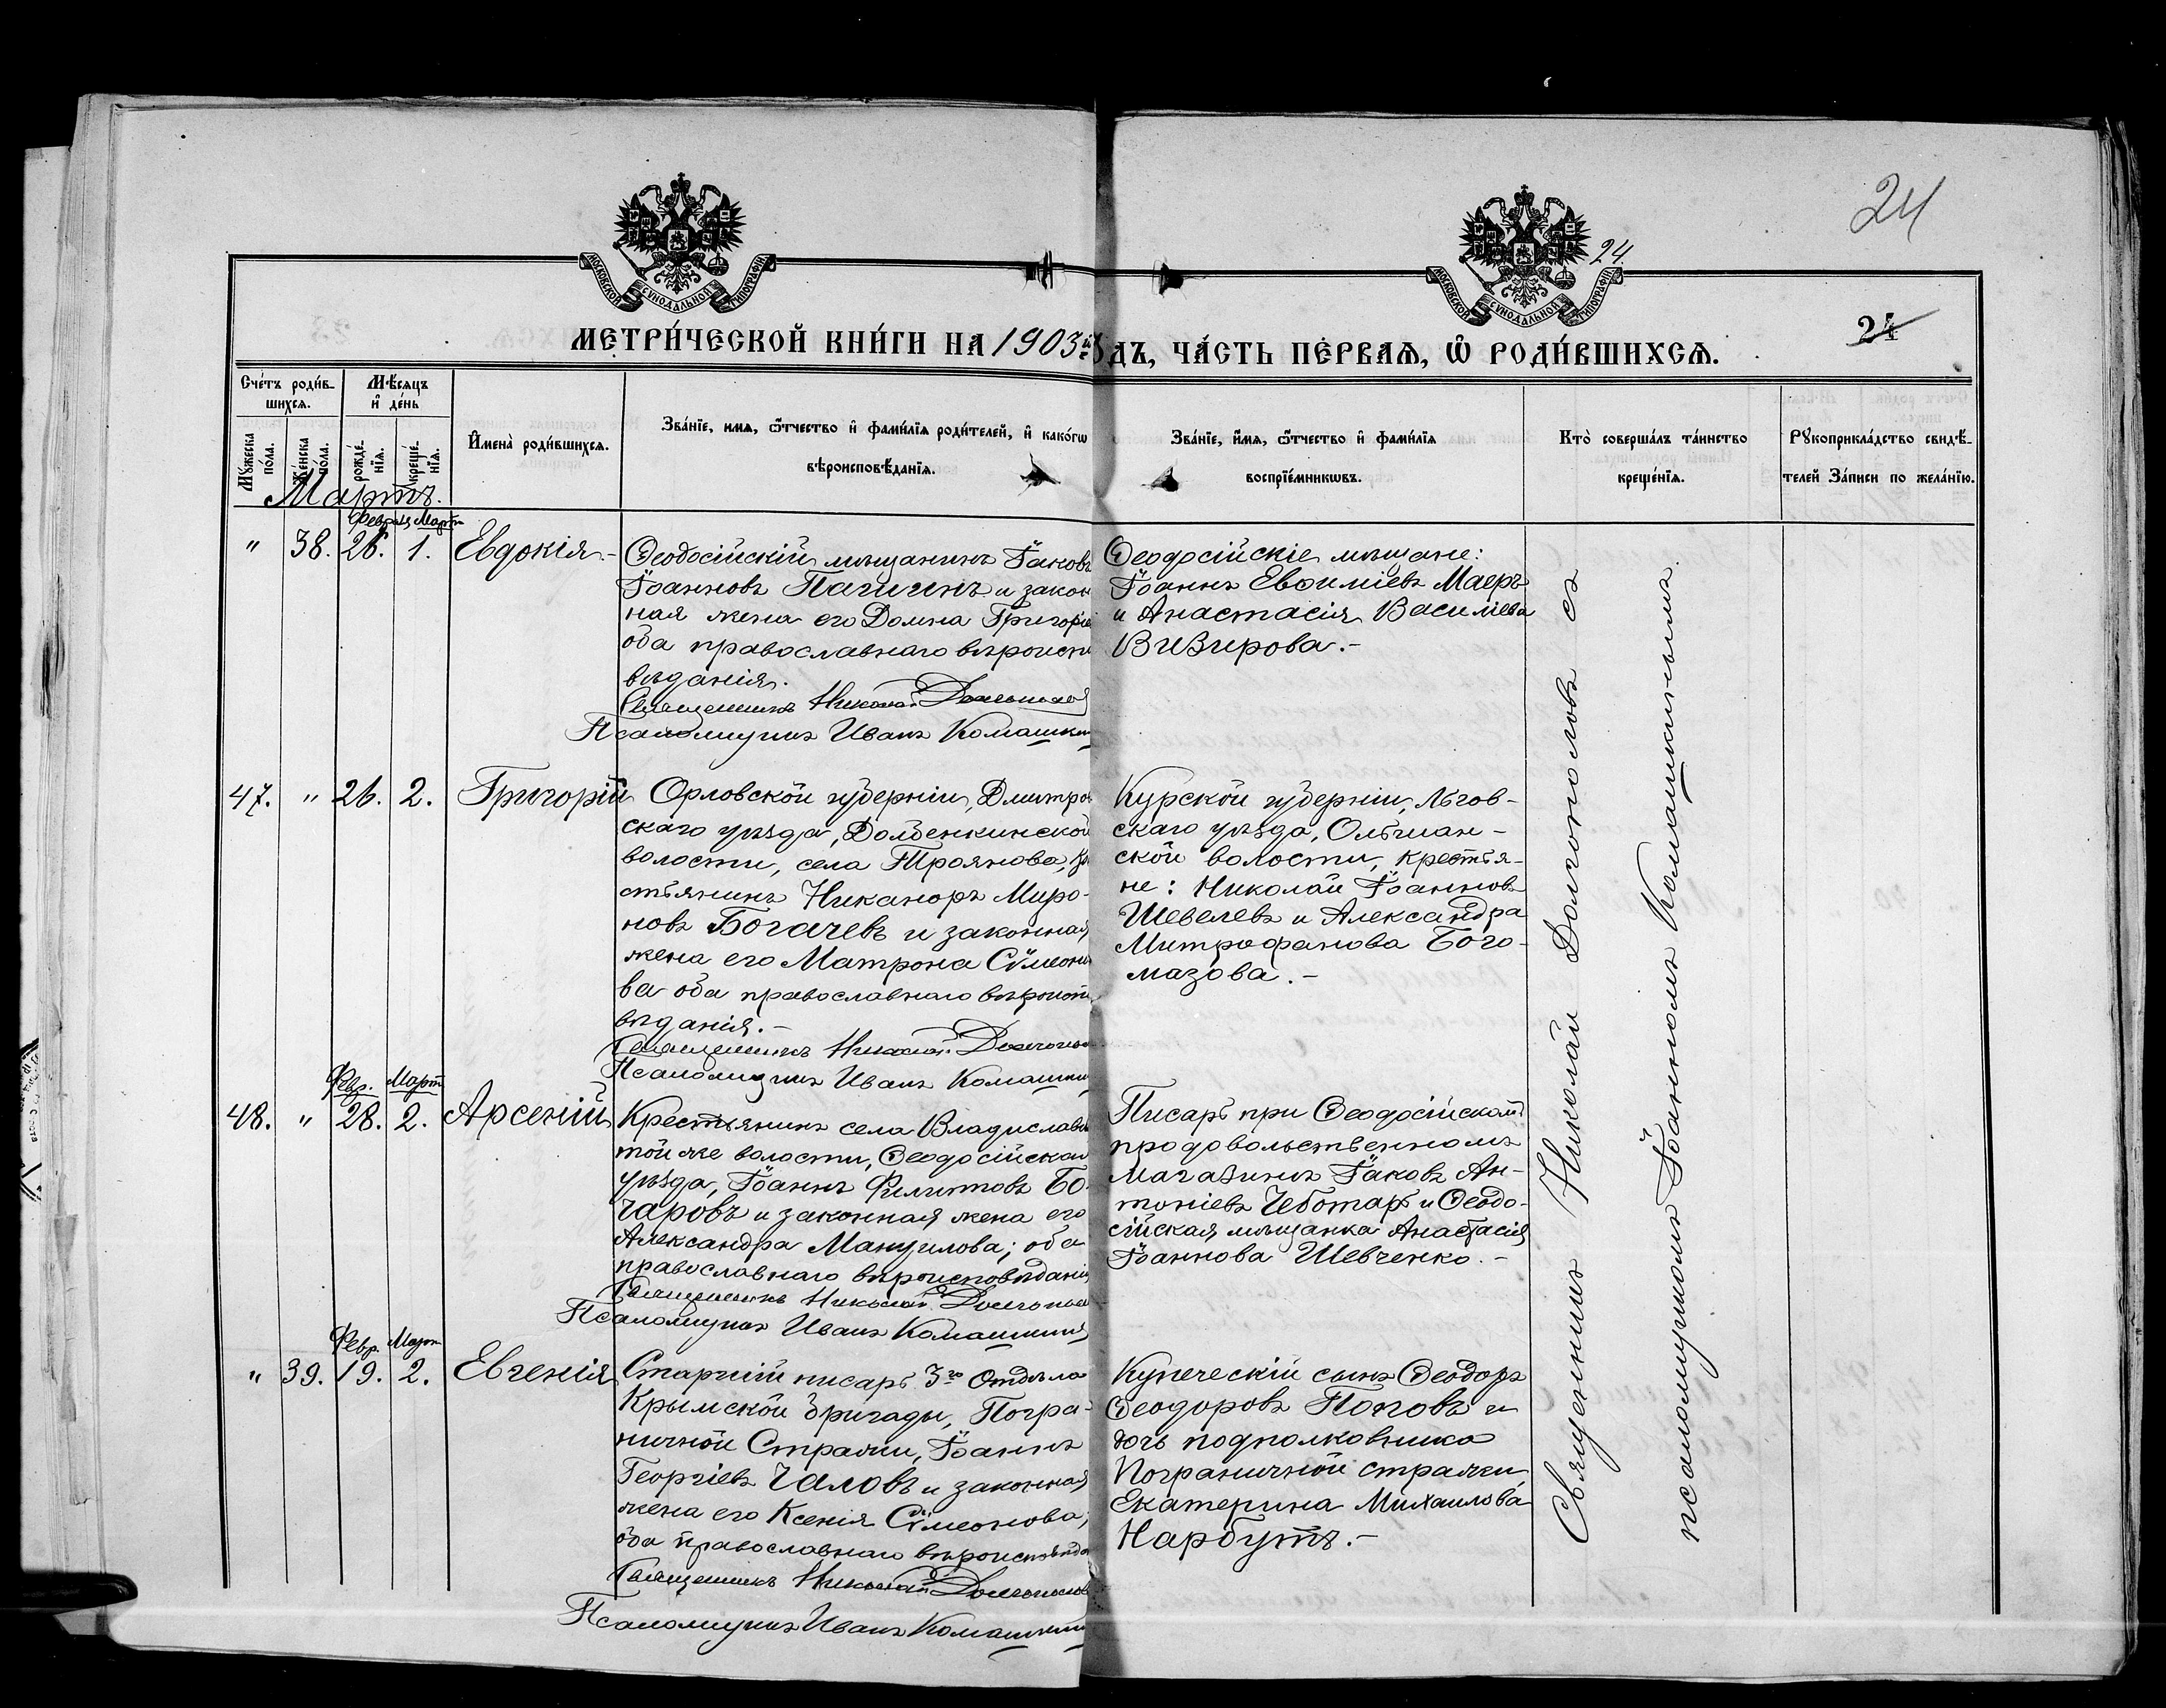 24
24.
24
МОСКОВСКОЙ СУНОДАЛЬНОЙ ТИПОГРАФІИ
МОСКОВСКОЙ СУНОДАЛЬНОЙ ТИПОГРАФІИ
МЕТРИ́ЧЕСКОЙ КНИ́ГИ НА 1903й ДЪ, ЧА́СТЬ ПЕ́РВАѦ, Ѽ РОДИ́ВШИХСѦ.
Сче́тъ роди́в-
шихсѧ.
Мꙋжеска по́ла.
Же́нска по́ла.
Мѣ́сѧцъ
и҆ де́нь
рожде́-
нїѧ.
креще́-
нїѧ.
И҆мена̀ роди́вшихсѧ.
Зва́нїе, имѧ, ѻ҆́тчество и҆ фами́лїѧ роди́телей, и҆ како́гѡ
вѣроисповѣ́данїѧ.
Зва́нїе, и҆́мѧ, ѻ҆́тчество и҆ фами́лїѧ
воспрїе́мникѡвъ.
Кто̀ соверша́лъ та́инство
креще́нїѧ.
Рꙋкоприкла́дство свидѣ́-
телей За́писи по жела́нїю.
Мартъ.
Февраля Март
" 38. 26. 1. Евдокія.-
Ѳеодосійскій мѣщанинъ Іаковъ
Іоанновъ Пашинъ и закон
ная жена его Домна Григоріе
оба православнаго вѣроиспо
вѣданія.
Священникъ Николай Долгополов
Псаломщикъ Иванъ Комашкин
Ѳеодосійскіе мѣщане:
Іоаннъ Евѳиміевъ Маеръ
и Анастасія Василіева
Визирова.-
47. " 26. 2. Григорій
Орловской губерніи, Дмитров
скаго уѣзда, Долбенкинской
волости, села Троянова, кре
стьянинъ Никаноръ Миро-
новъ Богачевъ и законная
жена его Матрона Сѵмеоно
ва оба православнаго вѣроиспо
вѣданія.-
Священникъ Николай Долгопол
Псаломщикъ Иванъ Комашкин
Курской губерніи, Льгов-
скаго уѣзда, Ольшан-
ской волости, крестья-
не: Николай Іоанновъ
Шевелевъ и Александра
Митрофанова Бого-
мазова.-
Февр. Март
48. " 28. 2. Арсеній
Крестьянинъ села Владиславов
той же волости, Ѳеодосійскаго
уѣзда, Іоаннъ Филиповъ Бо-
чаровъ и законная жена его
Александра Мануилова; оба
православнаго вѣроисповѣданія
Священникъ Николай Долгопол
Псаломщикъ Иванъ Комашкин
Писарь при Ѳеодосійскомъ
продовольственномъ
магазинѣ Іаковъ Ан-
тоніевъ Чеботарь и Ѳеодо-
сійская мѣщанка Анастасія
Іоаннова Шевченко.-
Февр. Март
" 39. 19. 2. Евгенія
Старшій писарь 3го Отдѣла
Крымской бригады, Погра-
ничной Стражи, Іоаннъ
Георгіевъ Чаловъ и законная
жена его Ксенія Сѵмеонова;
оба православнаго вѣроисповѣда
Священникъ Николай Долгополов
Псаломщикъ Иванъ Комашкин
Купеческій сынъ Ѳеодоръ
Ѳеодоровъ Поповъ и
дочь подполковника
Пограничной стражи,
Екатерина Михаилова
Нарбутъ.-
Священникъ Николай Долгополовъ съ
псаломщикомъ Іоанномъ Комашкинымъ.